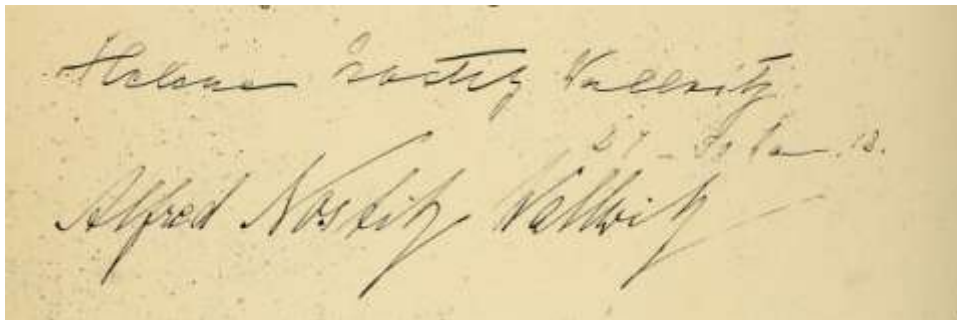 Helene Nostitz Wallwitz
Alfred Nostitz Wallwitz